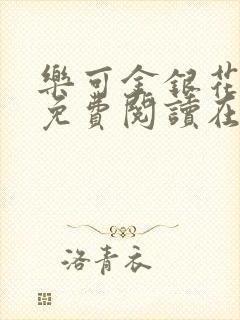 樂可金銀花
免費閱讀在
洛青衣